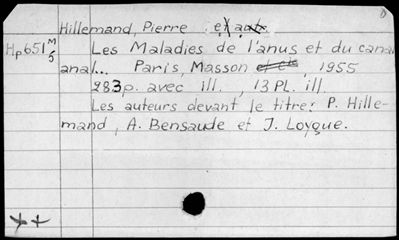 D
Hillemand, Pierre et autr.
Hp651 M/5 Les Maladies de l'anus et du canal
anal... Paris, Masson et Cie, 1955
283p. avec ill., 13 PL. ill.
Les auteurs devant le titre: P. Hille-
mand, A. Bensaude et J. Loygue.
++